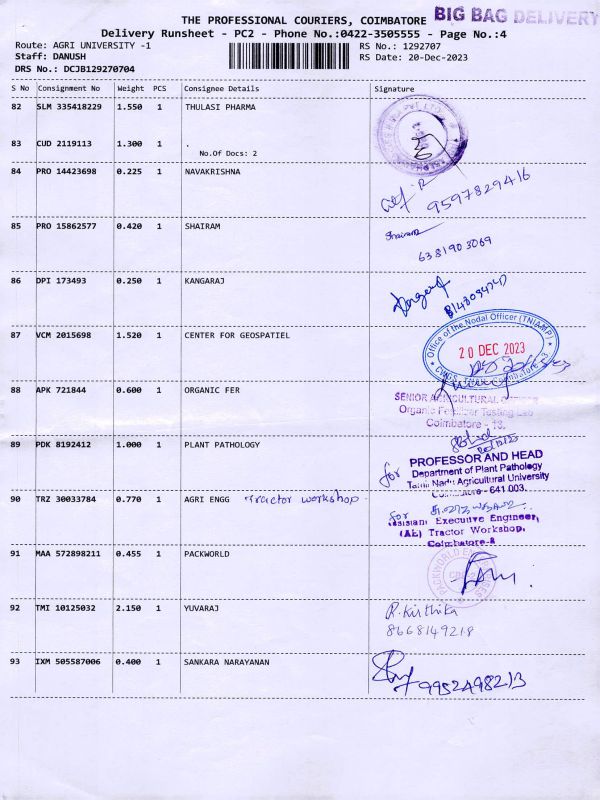 THE PROFESSIONAL COURIERS, COIMBATORE BIG BAG DELIVERY
Delivery Runsheet - PC2 - Phone No.:0422-3505555 - Page No.:4
Route: AGRI UNIVERSITY -1 RS No.: 1292707
Staff: DANUSH RS Date: 20-Dec-2023
DRS No.: DCJB129270704
S No Consignment No Weight PCS Consignee Details Signature
82 SLM 335418229 1.550 1 THULASI PHARMA
83 CUD 2119113 1.300 1 .
No.Of Docs: 2
84 PRO 14423698 0.225 1 NAVAKRISHNA
9597829416
85 PRO 15862577 0.420 1 SHAIRAM
Shairam
6381903069
86 DPI 173493 0.250 1 KANGARAJ
87 VCM 2015698 1.520 1 CENTER FOR GEOSPATIEL
Office of the Nodal Officer (TNIAMP)
20 DEC 2023
88 APK 721844 0.600 1 ORGANIC FER
SENIOR AGRICULTURAL OFFICER
Organic Fertilizer Testing Lab
Coimbatore - 13.
89 PDK 8192412 1.000 1 PLANT PATHOLOGY
for PROFESSOR AND HEAD
Department of Plant Pathology
Tamil Nadu Agricultural University
Coimbatore - 641 003.
90 TRZ 30033784 0.770 1 AGRI ENGG Tractor workshop
for
Assistant Executive Engineer,
(AE) Tractor Workshop,
Coimbatore-
91 MAA 572898211 0.455 1 PACKWORLD
PACKWORLD ENTERPRISES
92 TMI 10125032 2.150 1 YUVARAJ
R. Kirthika
8668149218
93 IXM 505587006 0.400 1 SANKARA NARAYANAN
9952498213